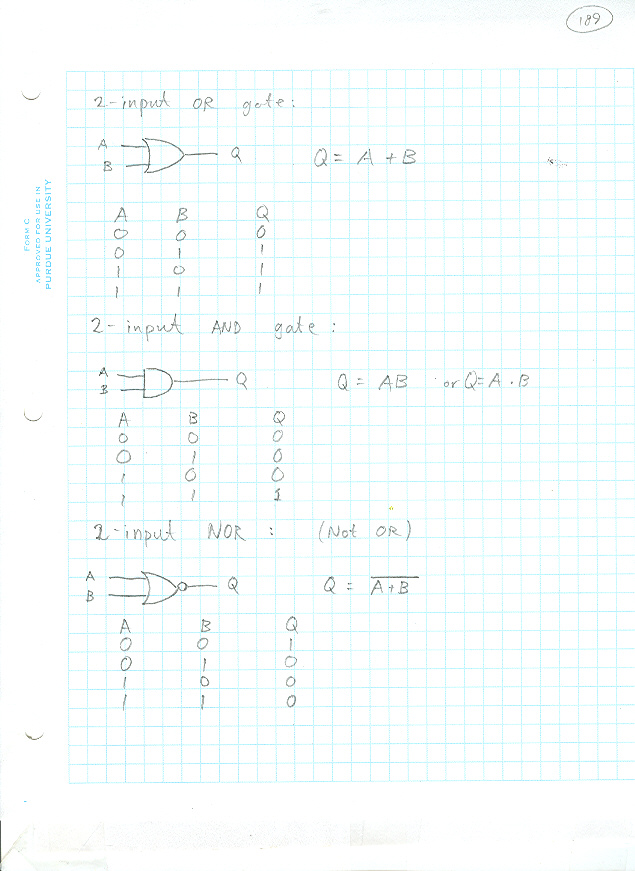 189
FORM C
APPROVED FOR USE IN
PURDUE UNIVERSITY
2-input OR gate:
A
B
Q
Q = A + B
A B Q
0 0 0
0 1 1
1 0 1
1 1 1
2-input AND gate:
A
B
Q
Q = AB or Q=A . B
A B Q
0 0 0
0 1 0
1 0 0
1 1 1
2-input NOR : (Not OR)
A
B
Q
Q = A̅+̅B̅
A B Q
0 0 1
0 1 0
1 0 0
1 1 0